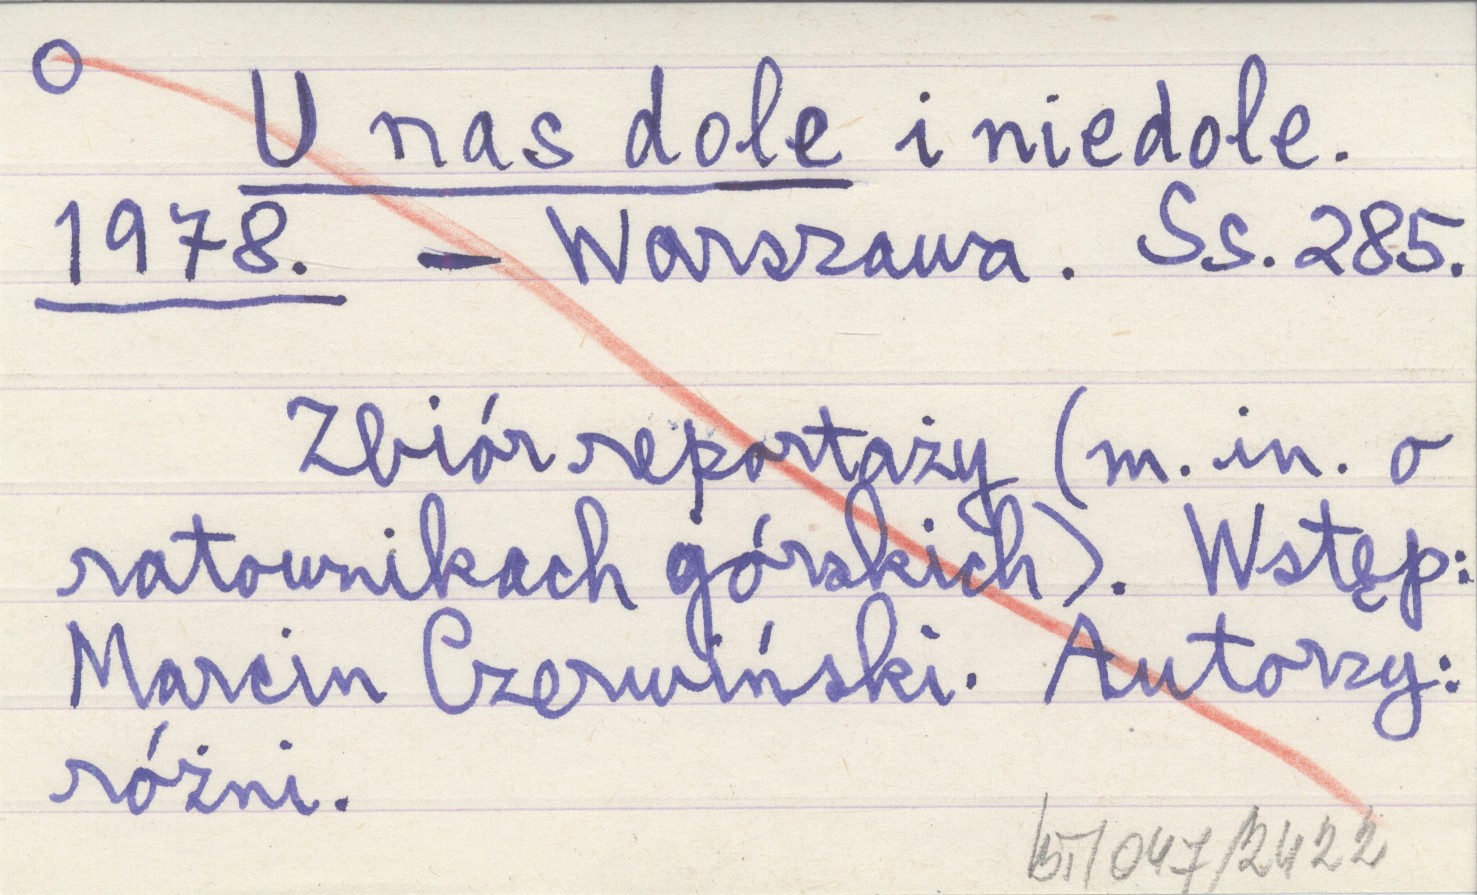 O
U nas dole i niedole.
1978. – Warszawa. Ss. 285.
Zbiór reportaży (m. in. o
ratownikach górskich). Wstęp:
Marcin Czerwiński. Autorzy:
różni.
047/2422